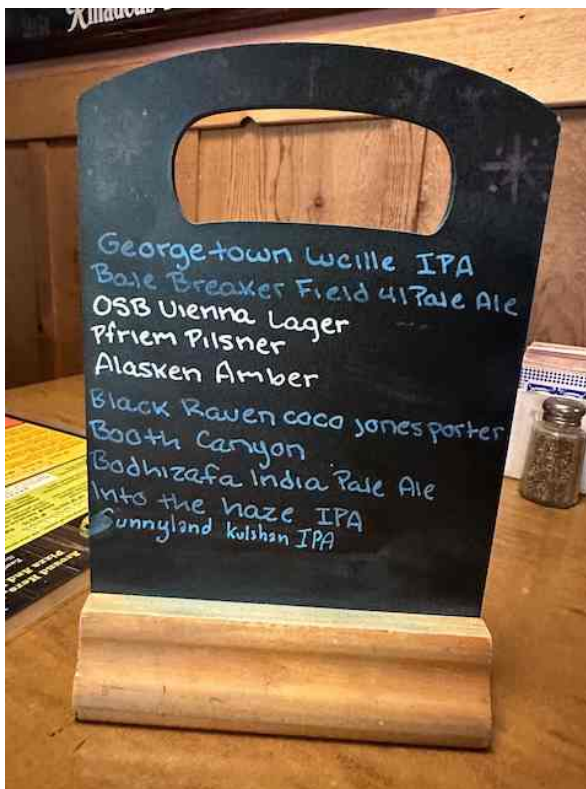 Amadeus
Georgetown Lucille IPA
Bale Breaker Field 41 Pale Ale
OSB Vienna Lager
Pfriem Pilsner
Alasken Amber
Black Raven coco jones porter
Booth Canyon
Bodhizafa India Pale Ale
Into the haze IPA
Sunnyland Kulshan IPA
Around Here
Pizza And